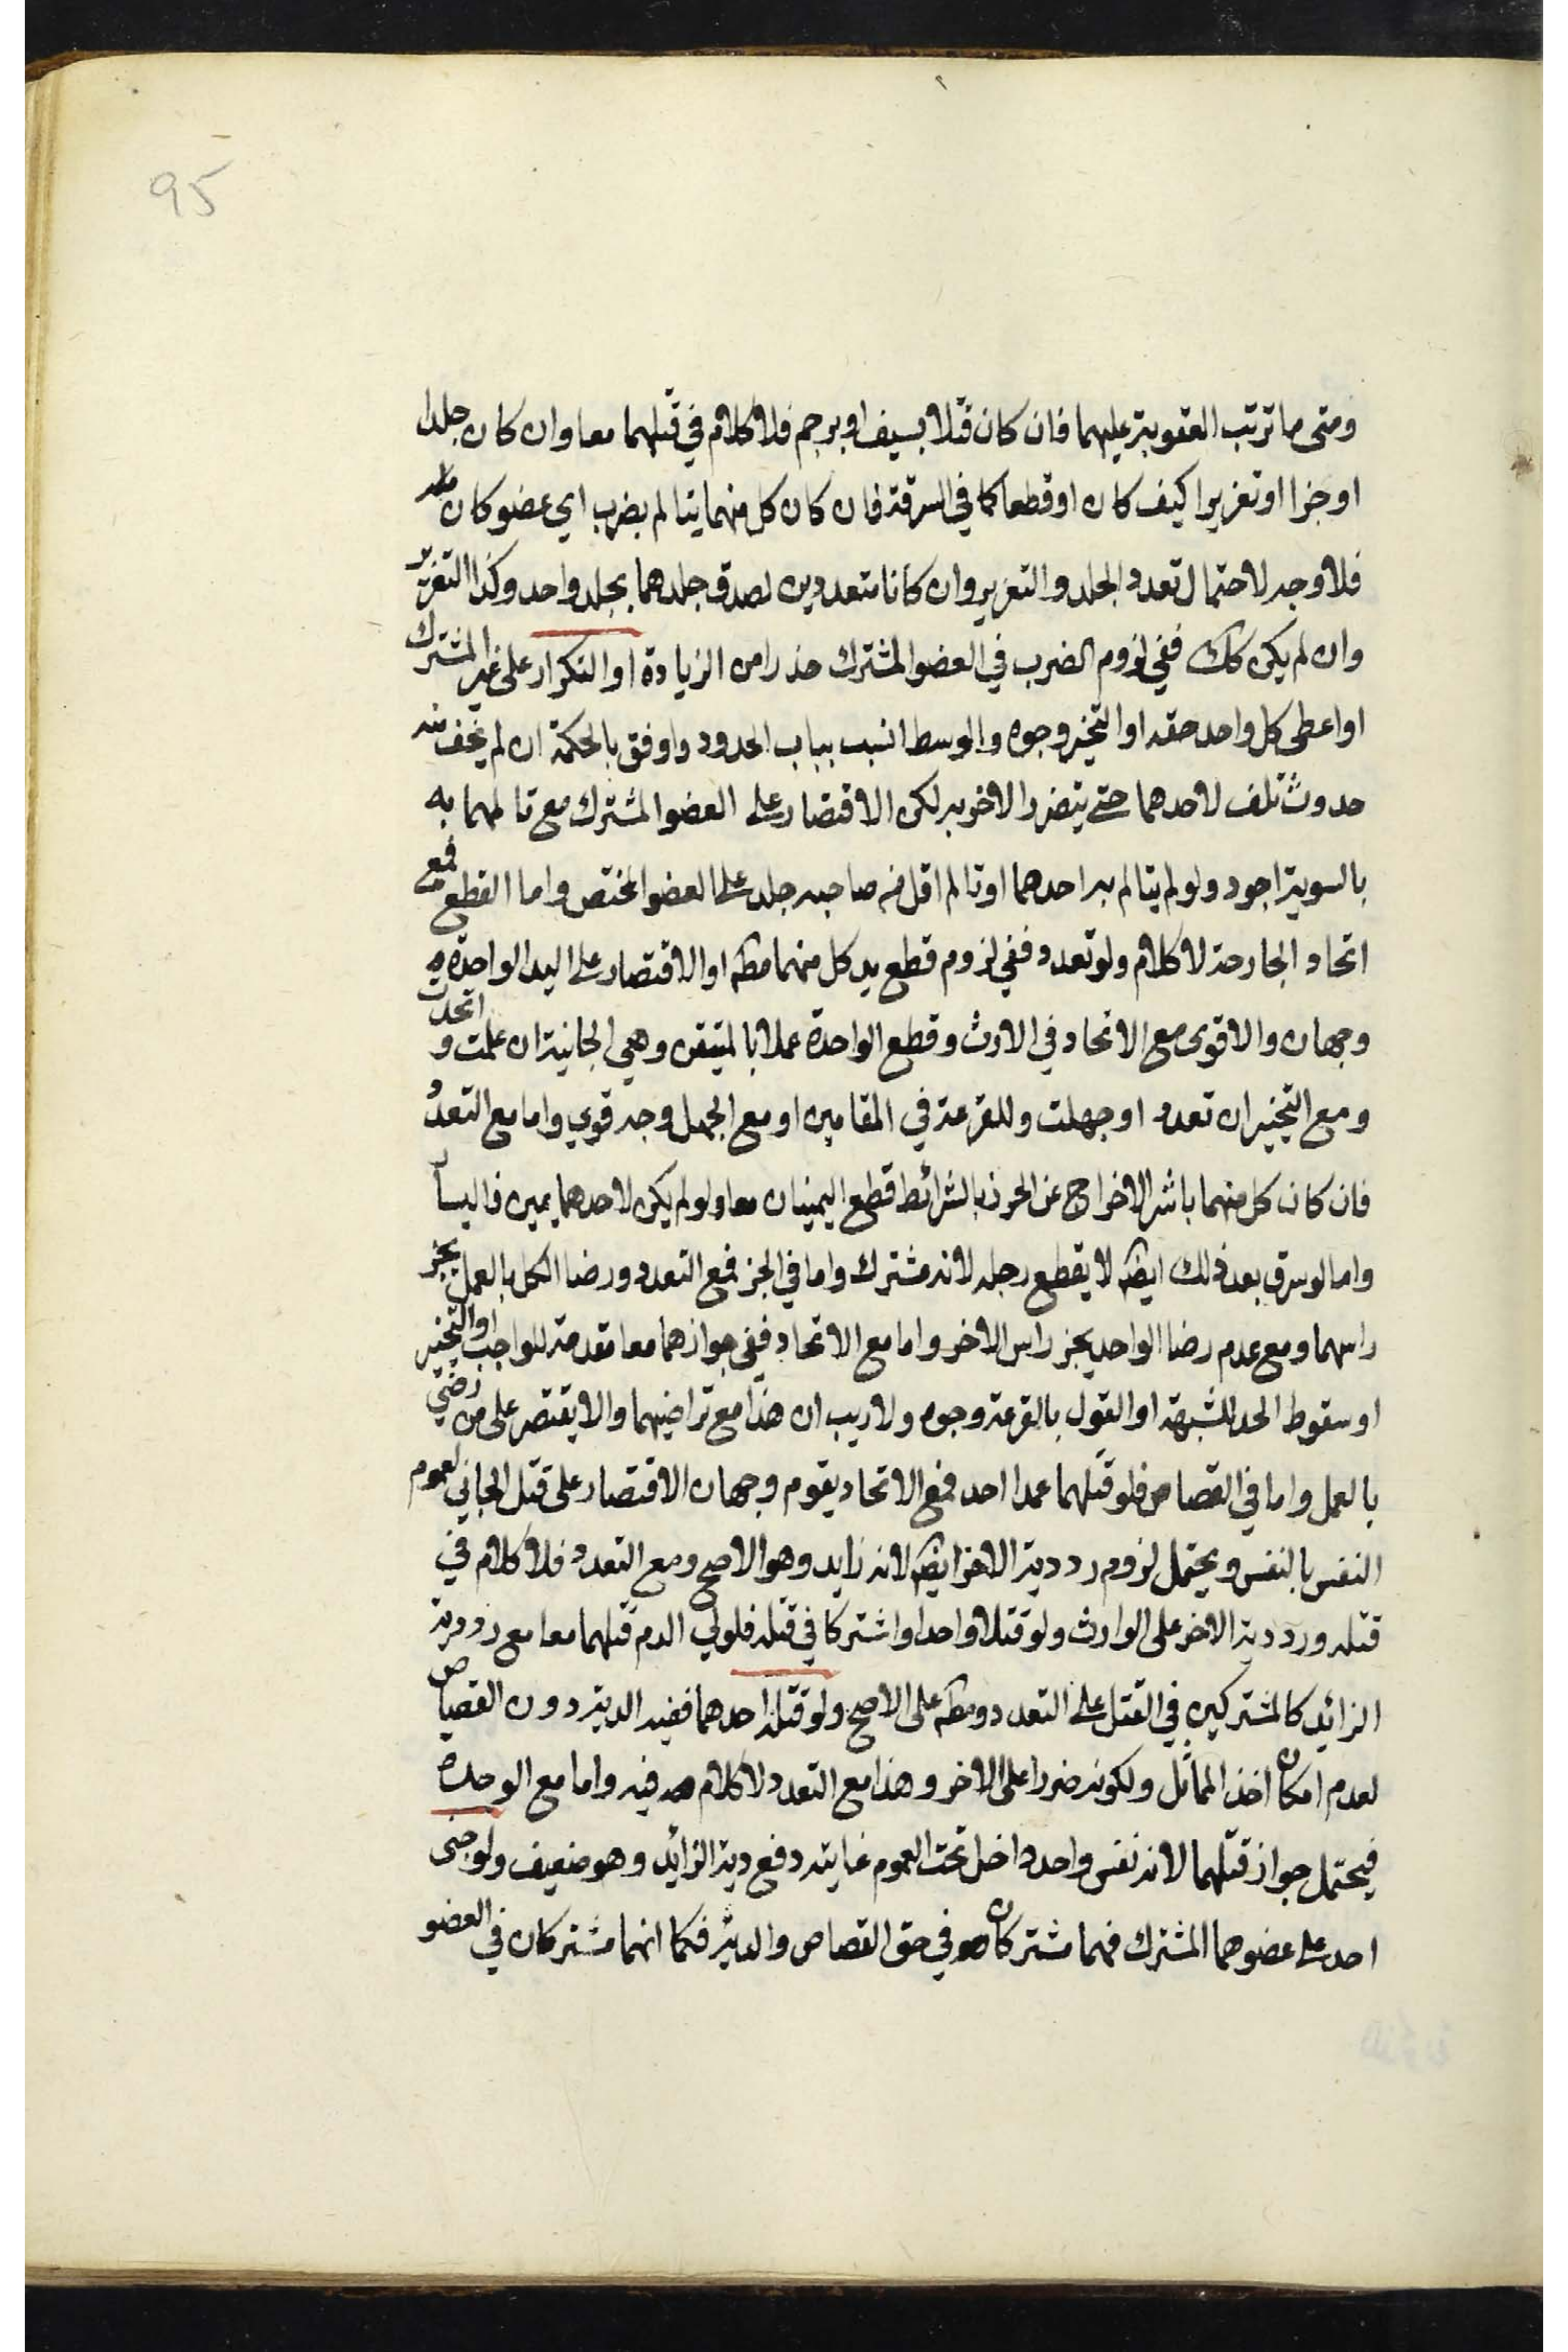 95
ومتى ما ترتب العقوبة عليهما فان كان قتلا بسيف او برجم فلا كلام في قتلهما معا وان كان جلدا
او جزا او تعزيرا كيف كان او قطعا كما في السرقة فان كان كل منهما يتالم بضرب اي عضو كان
فلا وجه لاحتمال تعدد الجلد والتعزير وان كانا متعددين لصدق جلدهما بجلد واحد وكذا التعزير
وان لم يكن كك ففي لزوم الضرب في العضو المشترك حذرا من الزيادة او التكرار على غير المشترك
او اعطى كل واحد حقه او التخير وجوه والوسط انسب بباب الحدود واوفق بالحكمة ان لم يخف منه
حدوث تلف لاحدهما حتى يتضرر الاخر به لكن الاقتصار على العضو المشترك مع تالمهما به
بالسوية اجود ولو لم يتالم به احدهما او تالم اقل من صاحبه جلد على العضو المختص واما القطع فمع
اتحاد الجارحة لا كلام ولو تعدد ففي لزوم قطع يد كل منهما مط او الاقتصار على اليد الواحدة
وجهان والاقوى مع الاتحاد في الارث وقطع الواحدة عملا بالمتيقن وهي الجانية ان علمت و اتحدت
ومع التخير ان تعدد او جهلت وللقرعة في المقامين او مع الجهل وجه قوي واما مع التعدد
فان كان كل منهما باشر الاخراج عن الحرز بالشرائط قطع اليمينان معا ولو لم يكن لاحدهما يمين فاليسار
واما لو سرق بعد ذلك ايض لا يقطع رجله لانه مشترك واما في الجز فمع التعدد ورضا الكل بالعمل يجز
راسهما ومع عدم رضا الواحد يجز راس الاخر واما مع الاتحاد ففي جوازهما معا مقدمة للواجب او التخير
او سقوط الحد للشبهة او القول بالقرعة وجوه ولا ريب ان هذا مع تراضيهما والا يقتصر على من رضي
بالعمل واما في القصاص فلو قتلهما عمدا احد فمع الاتحاد يقوم وجهان الاقتصار على قتل الجاني لعموم
النفس بالنفس ويحتمل لزوم رد دية الاخر ايض لانه زايد وهو الاصح ومع التعدد فلا كلام في
قتله ورد دية الاخر على الوارث ولو قتلا واحدا واشتركا في قتله فلولي الدم قتلهما معا مع رد دية
الزائد كالمشتركين في القتل على التعدد ومط على الاصح ولو قتله احدهما ففيه الدية دون القصاص
لعدم امكان اخذ المماثل ولكونه ضررا على الاخر وهذا مع التعدد لا كلام فيه واما مع الوحدة
فيحتمل جواز قتلهما لانه نفس واحد داخل تحت العموم غايته دفع دية الزائد وهو ضعيف ولو جنى
احد على عضوهما المشترك فهما مشتركان في حق القصاص والدية فكما انهما مشتركان في العضو